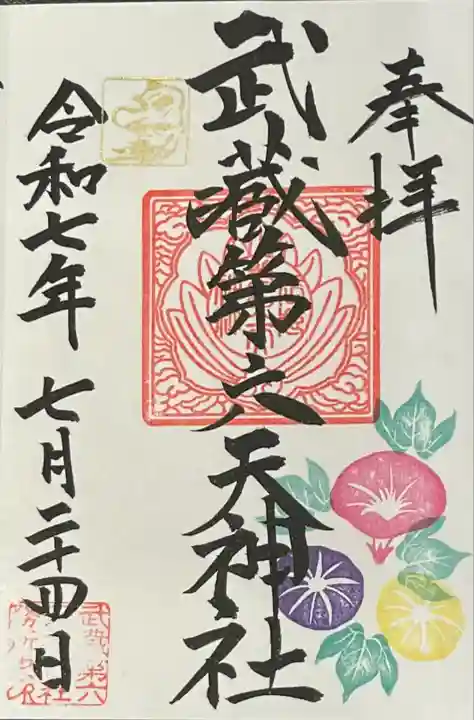 奉拝
武蔵第六天神社
令和七年 七月二十四日
武蔵第六